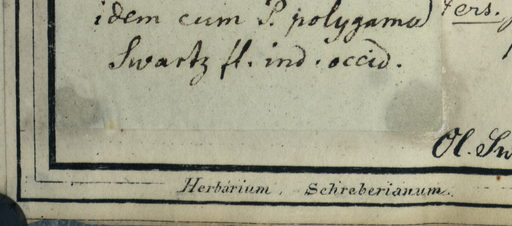 idem cum P. polygama Pers.
Swartz fl. ind. occid.
Ol. Sw
Herbarium Schreberianum.